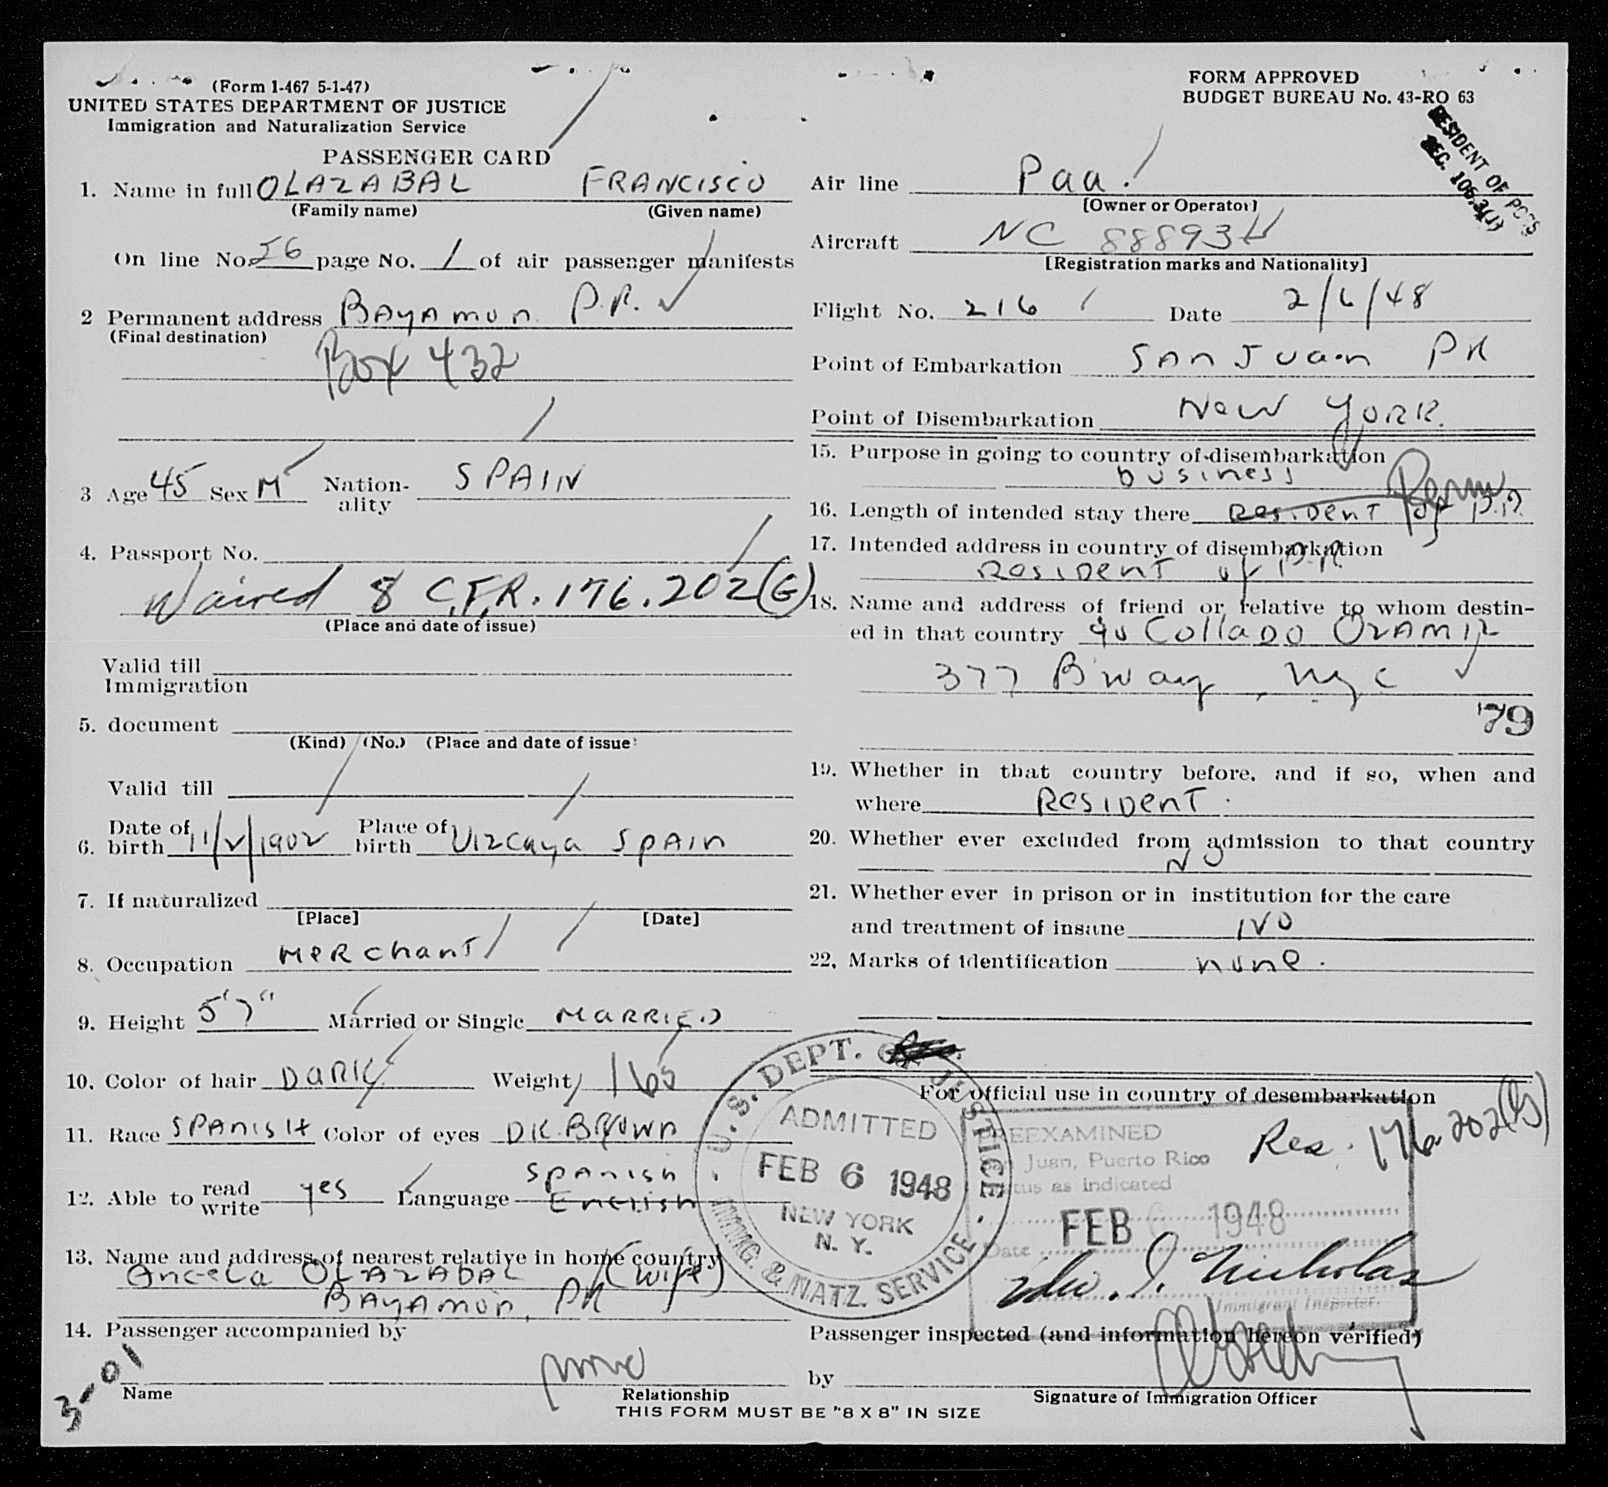 (Form 1-467 5-1-47)
UNITED STATES DEPARTMENT OF JUSTICE
Immigration and Naturalization Service
PASSENGER CARD
1. Name in full OLAZABAL FRANCISCO
(Family name) (Given name)
On line No. 56 page No. 1 of air passenger manifests
2 Permanent address BAYAMON P.R.
(Final destination)
Box 432
3 Age 45 Sex M Nation-ality SPAIN
4. Passport No.
Waived 8 C.F.R. 176.202(G)
(Place and date of issue)
Valid till
Immigration
5. document
(Kind) (No.) (Place and date of issue)
Valid till
6. Date of birth 11/2/1902 Place of birth Vizcaya SPAIN
7. If naturalized
[Place] [Date]
8. Occupation Merchant
9. Height 5'7" Married or Single MARRIED
10. Color of hair DARK Weight 160
11. Race SPANISH Color of eyes DK. BROWN
12. Able to read write yes Language Spanish English
13. Name and address of nearest relative in home country
Angela OLAZABAL (wife)
BAYAMON, PR
14. Passenger accompanied by
none
Name Relationship
THIS FORM MUST BE "8 X 8" IN SIZE
3-01
FORM APPROVED
BUDGET BUREAU No. 43-RO 63
RESIDENT OF
SEC. 106.3(J)
Air line Paa.
[Owner or Operator]
Aircraft NC 88893H
[Registration marks and Nationality]
Flight No. 216 Date 2/6/48
Point of Embarkation SAN JUAN PR
Point of Disembarkation NEW YORK.
15. Purpose in going to country of disembarkation
business
16. Length of intended stay there Resident of P.R. Perm
17. Intended address in country of disembarkation
Resident of P.R.
18. Name and address of friend or relative to whom destin-
ed in that country c/o Collado Ozamiz
377 B'way, NYC
79
19. Whether in that country before, and if so, when and
where Resident.
20. Whether ever excluded from admission to that country
No
21. Whether ever in prison or in institution for the care
and treatment of insane NO
22. Marks of identification none.
For official use in country of desembarkation
U.S. DEPT. OF JUSTICE
ADMITTED
FEB 6 1948
NEW YORK
N. Y.
IMMIG. & NATZ. SERVICE
PREEXAMINED
San Juan, Puerto Rico
Status as indicated
Res. 176.202(G)
FEB 1948
Date
Nicholas
Immigrant Inspector.
Passenger inspected (and information hereon verified)
by
Signature of Immigration Officer